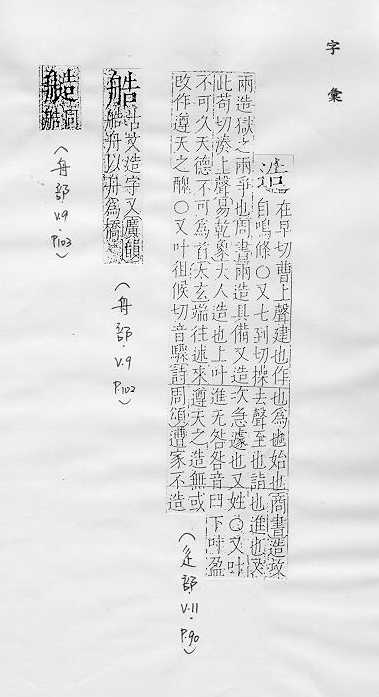 字彙
造 在早切曹上聲建也作也為也始也商書造攻
自鳴條〇又七到切操去聲至也詣也進也又
兩造獄之兩爭也周書兩造具備又造次急遽也又姓〇又叶
此苟切湊上聲易乾象大人造也上叶進无咎咎音臼下叶盈
不可久天德不可為首太玄端往述來遵天之造無或
改作遵天之醜〇又叶徂候切音驟詩周頌遭家不造
(辵部 V.11. P.90)
艁 古文造字又廣韻
艁舟以舟為橋
(舟部 V.9 P.102)
(舟部 V.9. P.103)